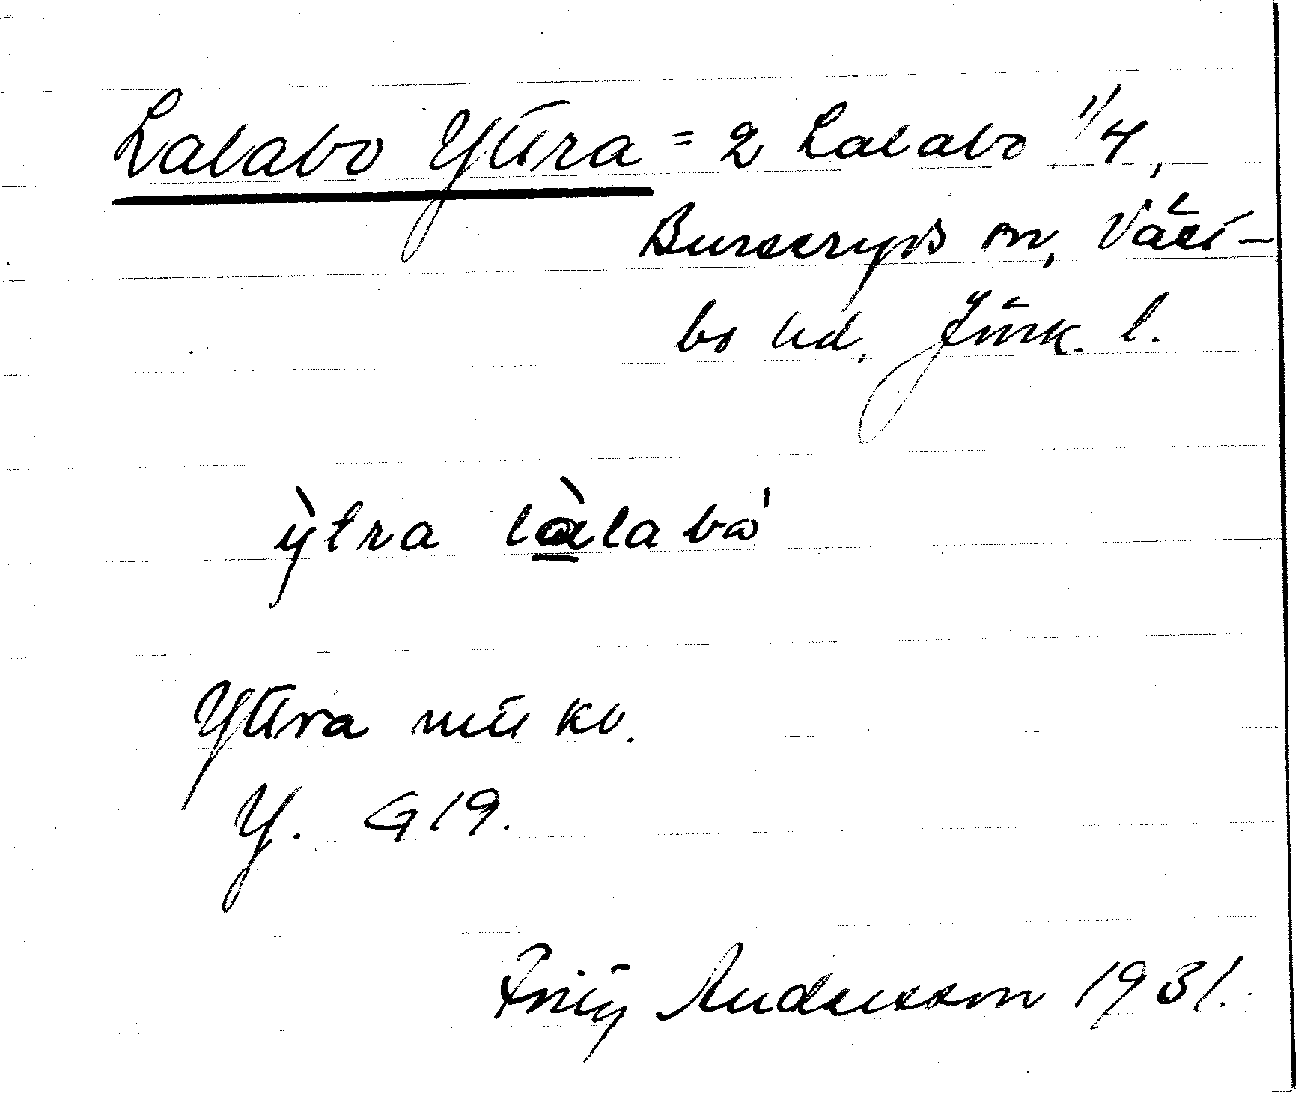 Lalabo Yttra = 2 Lalabo 1/4,
Burseryds sn, Västbo
bo hd, Jönk. l.
ỳtra làlabó
Yttra mtl kv.
Y. G19.
Fritz Andersson 1931.